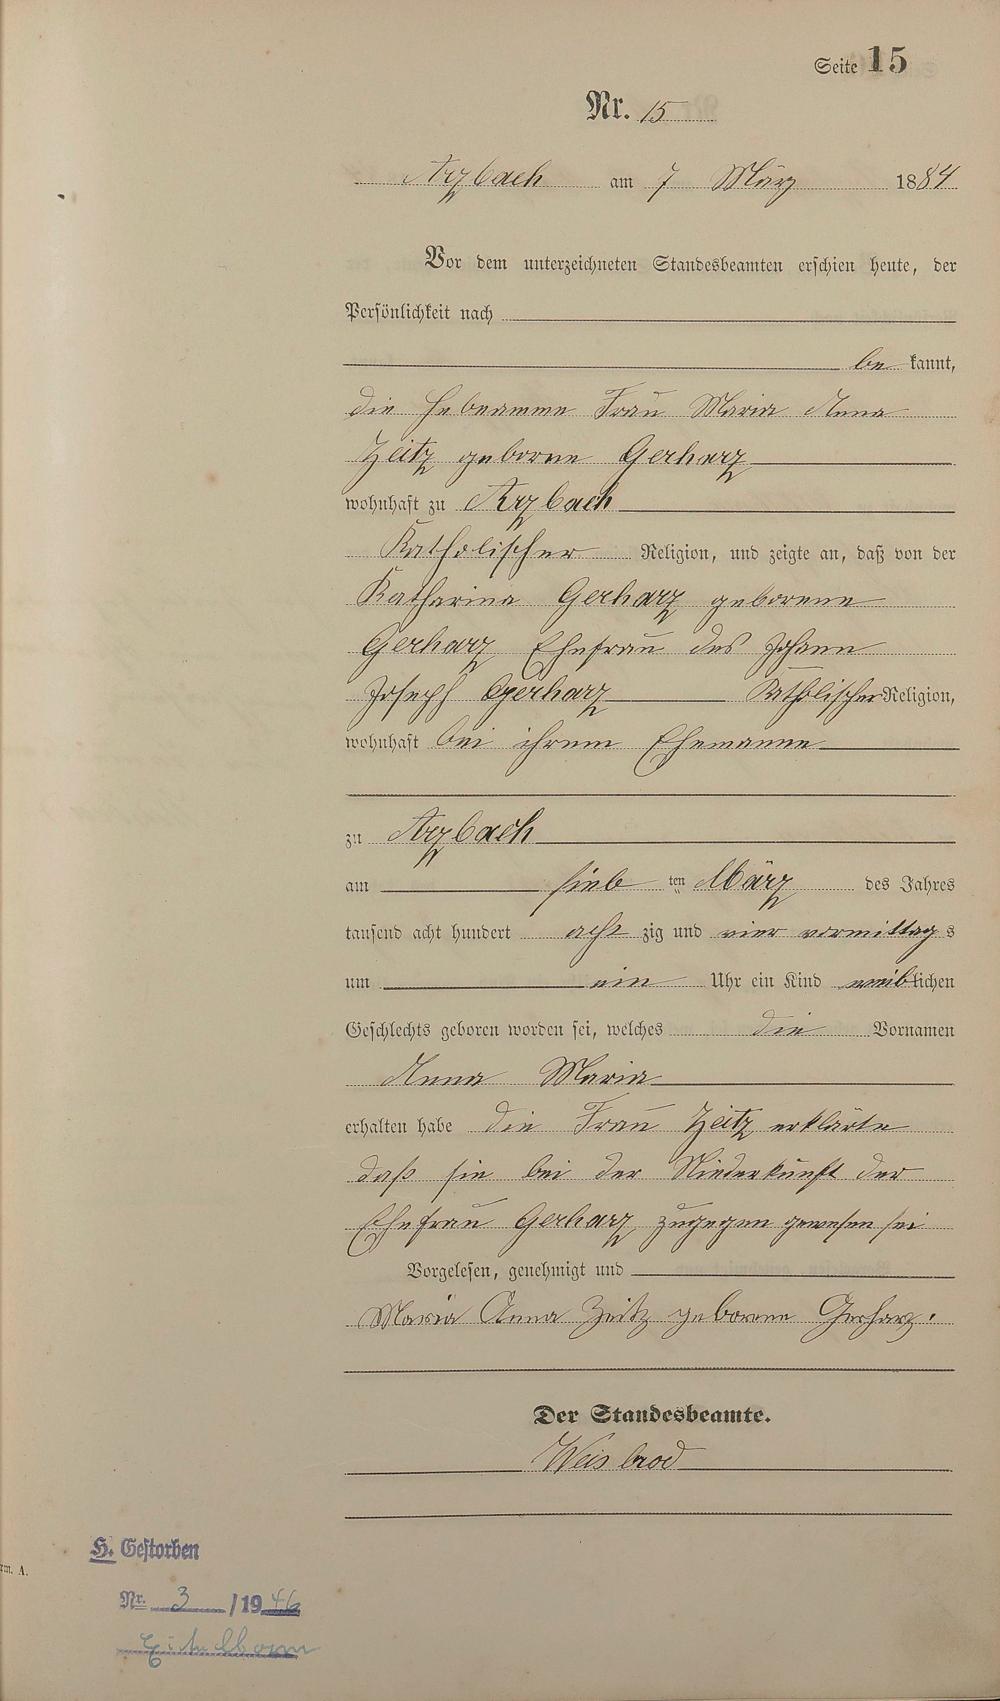 Seite 15
Nr. 15
Arzbach am 7 März 1884
Vor dem unterzeichneten Standesbeamten erschien heute, der
Persönlichkeit nach
be kannt,
die Hebeamme Frau Maria Anna
Zeitz geborne Gerharz
wohnhaft zu Arzbach
Katholischer Religion, und zeigte an, daß von der
Katharina Gerharz geborene
Gerharz Ehefrau des Johann
Joseph Gerharz Katholischer Religion,
wohnhaft bei ihrem Ehemanne
zu Arzbach
am sieb ten März des Jahres
tausend acht hundert acht zig und vier vormittag s
um ein Uhr ein Kind weiblichen
Geschlechts geboren worden sei, welches die Vornamen
Anna Maria
erhalten habe die Frau Zeitz erklärte
daß sie bei der Niederkunft der
Ehefrau Gerharz zugegen gewesen sei
Vorgelesen, genehmigt und
Maria Anna Zeitz geborne Gerharz.
Der Standesbeamte.
Weisbrod
H. Gestorben
rm. A.
Nr. 3 /19 46
Eitelborn